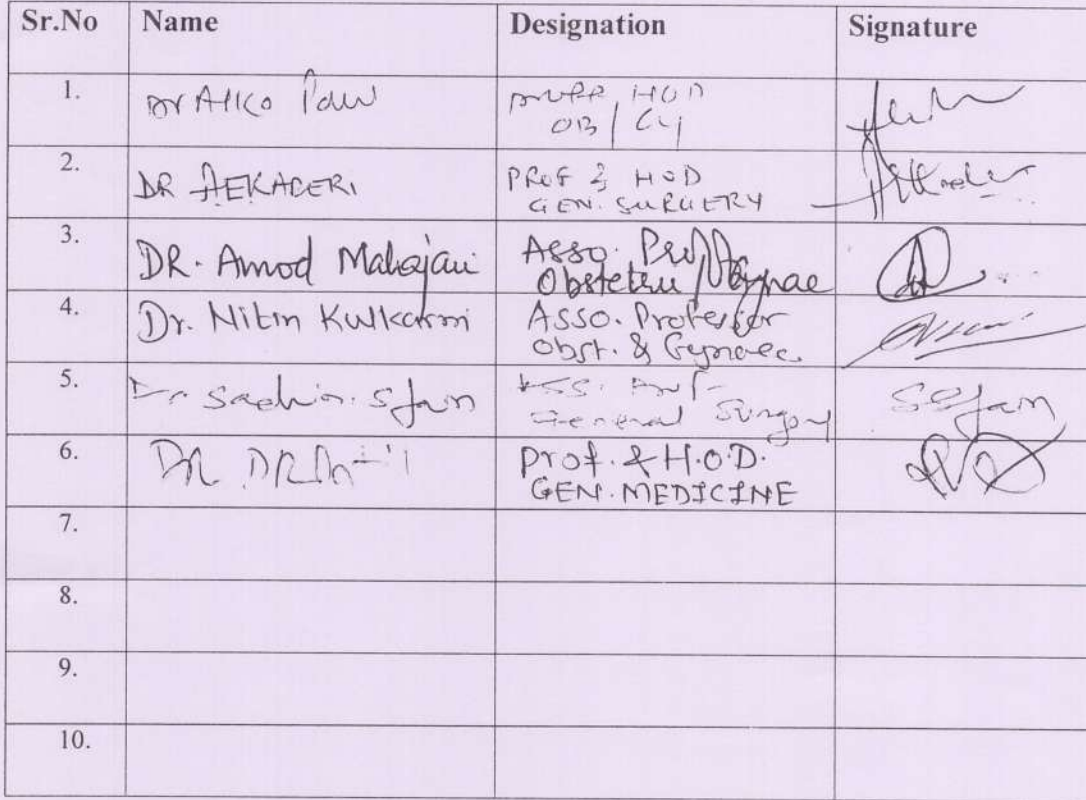 Sr.No Name Designation Signature
1. Dr HOD
OB / Gy
2. DR PROF & HOD
GEN. SURGERY
3. DR. Amod Mahajan Asso. Prof
Obstetric / Gynae
4. Dr. Nitin Kulkarni Asso. Professor
Obst. & Gynaec.
5. Dr. Sachin. S Jain Ass. Prof
General Surgery SSJain
6. DR Prof. & H.O.D.
GEN. MEDICINE
7.
8.
9.
10.